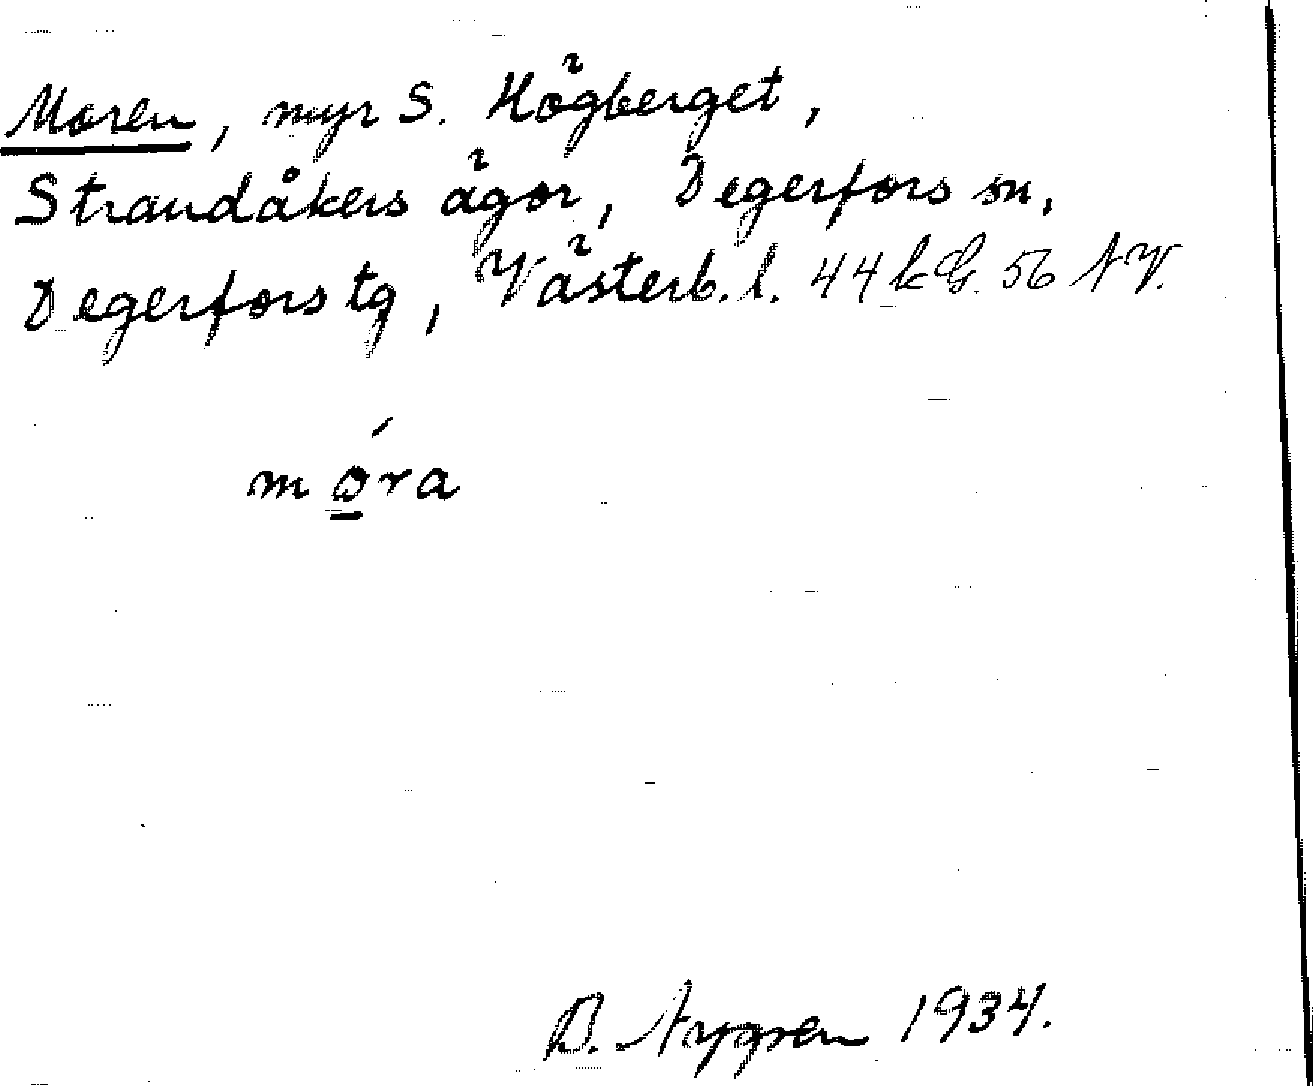 Moren, myr S. Högberget,
Strandåkers ägor, Degerfors sn,
Degerfors tg, Västerb. l. 44 k G. 56 N V.
móra
B. Nygren 1934.